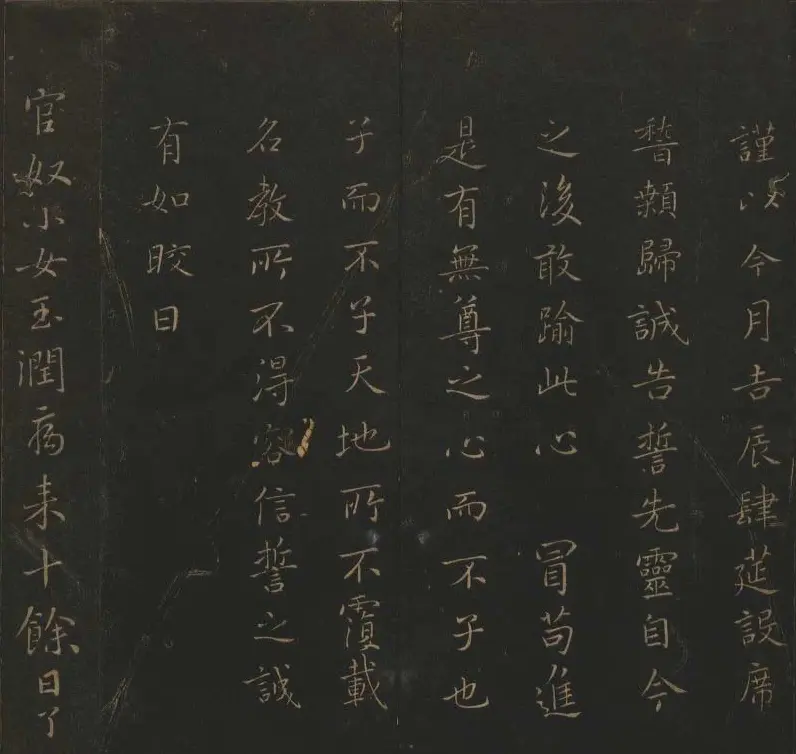 謹以今月吉辰肆莚設席
稽顙歸誠告誓先靈自今
之後敢踰此心 冒苟進
是有無尊之心而不子也
子而不子天地所不覆載
名教所不得容信誓之誠
有如皎日
官奴小女玉潤病来十餘日了